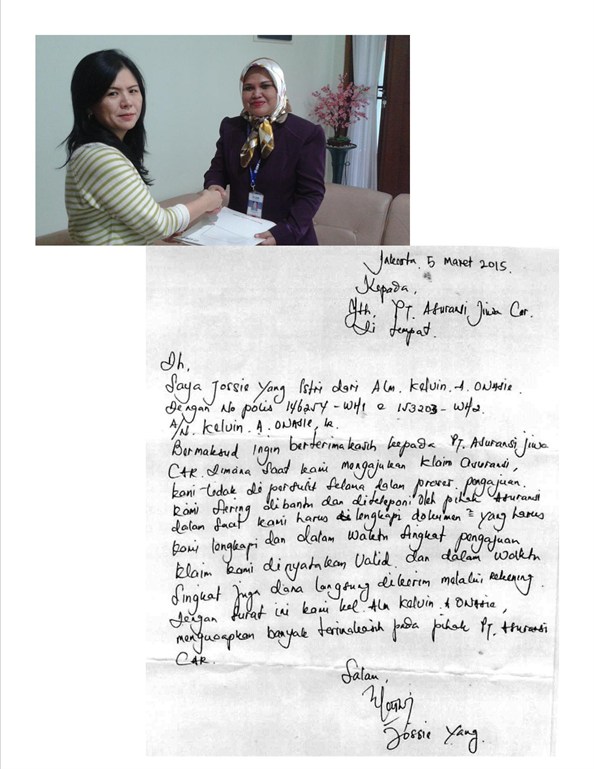 Jakarta, 5 Maret 2015.
Kepada,
Yth, PT. Asuransi Jiwa Car.
Di tempat.
Dh,
Saya Jossie Yang Istri dari Alm. Kelvin. A. ONAsie.
Dengan No polis 146254 - WH1 & 153203 - WH2.
A/N. Kelvin. A. ONAsie, Ir.
Bermaksud Ingin berterimakasih kepada PT. Asuransi Jiwa
CAR. Dimana Saat kami mengajukan klaim asuransi,
kami tidak di persulit Selama dalam proses pengajuan.
kami Sering dibantu dan diteleponi oleh pihak Asuransi
dalam Saat kami harus lengkapi dokumen = yang harus
kami lengkapi dan dalam waktu Singkat pengajuan
klaim kami dinyatakan Valid. dan dalam waktu
Singkat Juga dana langsung dikirim melalui Rekening.
Dengan Surat ini kami kel. Alm Kelvin. A ONAsie,
mengucapkan banyak terimakasih pada pihak PT. Asuransi
CAR.
Salam,
Jossie Yang.